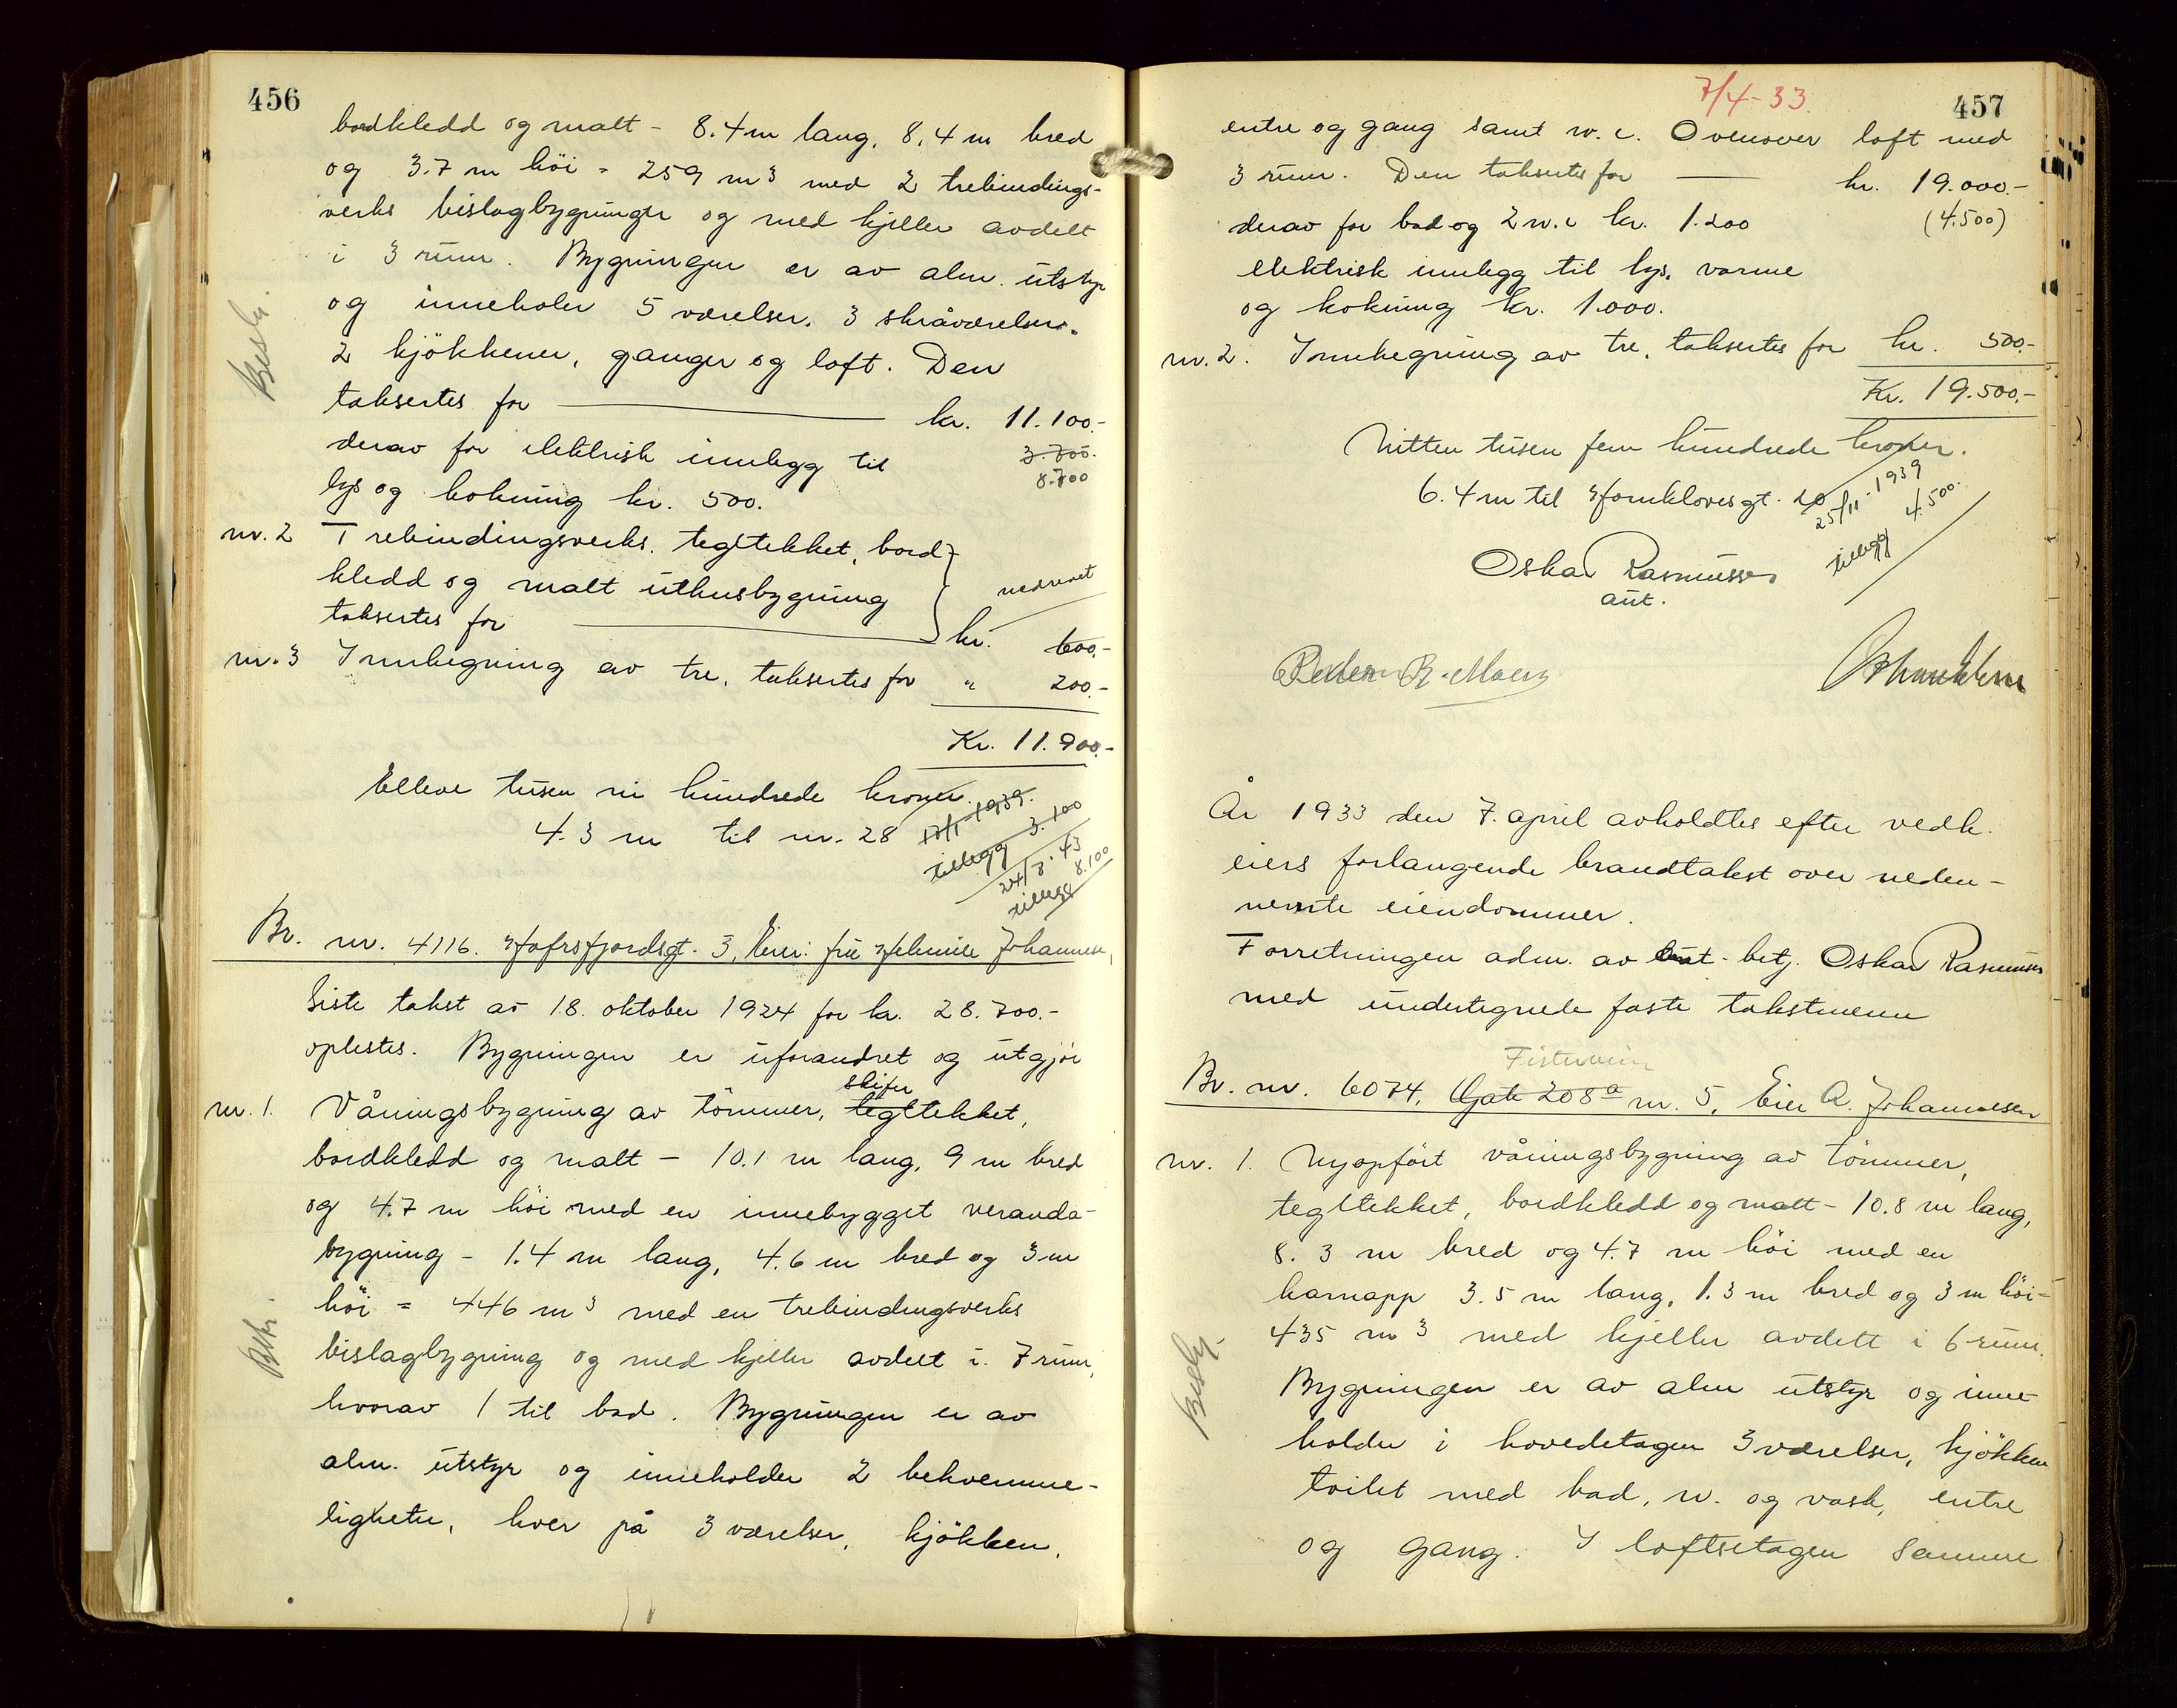 456
bordkledd og malt - 8.4 m lang, 8,4 m bred
og 3.7 m höi = 259 m³ med 2 trebindings-
verks bislagbygninger og med kjeller avdelt
i 3 rum. Bygningen er av alm. utstyr
og inneholer 5 værelser, 3 skråværelser.
2 kjökkener, ganger og loft. Den
taksertes for kr. 11.100.-
derav for elektrisk innlegg til 3.700.-
8.700
lys og kokning kr. 500.
nr. 2 Trebindingsverks, tegltekket, bord-
kledd og malt uthusbygning nedrevet
taksertes for kr. 600.-
nr. 3 Innhegning av tre, taksertes for " 200.-
Kr. 11.900.-
Elleve tusen ni hundrede kroner.
4.3 m til nr. 28 17/1 1939.
tillegg 3.100
24/3 '43
tillegg 8.100
Br. nr. 4116. Hafrsfjordsgt. 3, Eier: fru Helmine Johannesen,
Siste takst av 18. oktober 1924 for kr. 28.700.-
oplestes. Bygningen er uforandret og utgjör
skifer
nr. 1. Våningsbygning av tömmer, tegltekket,
bordkledd og malt - 10.1 m lang, 9 m bred
og 4.7 m höi med en innebygget veranda-
bygning - 1.4 m lang, 4.6 m bred og 3 m
höi = 446 m³ med en trebindingsverks
bislagbygning og med kjeller avdelt i 7 rum,
hvorav 1 til bad. Bygningen er av
alm. utstyr og inneholder 2 bekvemme-
ligheter, hver på 3 værelser, kjökken,
7/4-33.
457
entre og gang samt w.c. Ovenover loft med
3 rum. Den taksertes for kr. 19.000.-
derav for bad og 2 w.c kr. 1.200 (4.500)
elektrisk innlegg til lys, varme
og kokning kr. 1.000.
nr. 2. Innhegning av tre, taksertes for kr. 500.-
Kr. 19.500.-
Nitten tusen fem hundrede kroner.
6.4 m til Homklovesgt. 20
25/11-1939
tillegg 4.500.
Oskar Rasmussen
aut.
Peder R. Moen
År 1933 den 7. april avholdtes efter vedk.
eiers forlangende brandtakst over neden-
nevnte eiendommer.
Forretningen adm. av aut. betj. Oskar Rasmussen
med undertegnede faste takstmenn
Fisterveien
Br. nr. 6074, Gate 208a nr. 5, Eier A. Johannesen
nr. 1. Nyopfört våningsbygning av tömmer,
tegltekket, bordkledd og malt - 10.8 m lang,
8.3 m bred og 4.7 m höi med en
karnapp 3.5 m lang, 1.3 m bred og 3 m höi =
435 m³ med kjeller avdelt i 6 rum.
Bygningen er av alm utstyr og inne-
holder i hovedetagen 3 værelser, kjökken
toilet med bad, w. og vask, entre
og gang. I loftsetagen samme